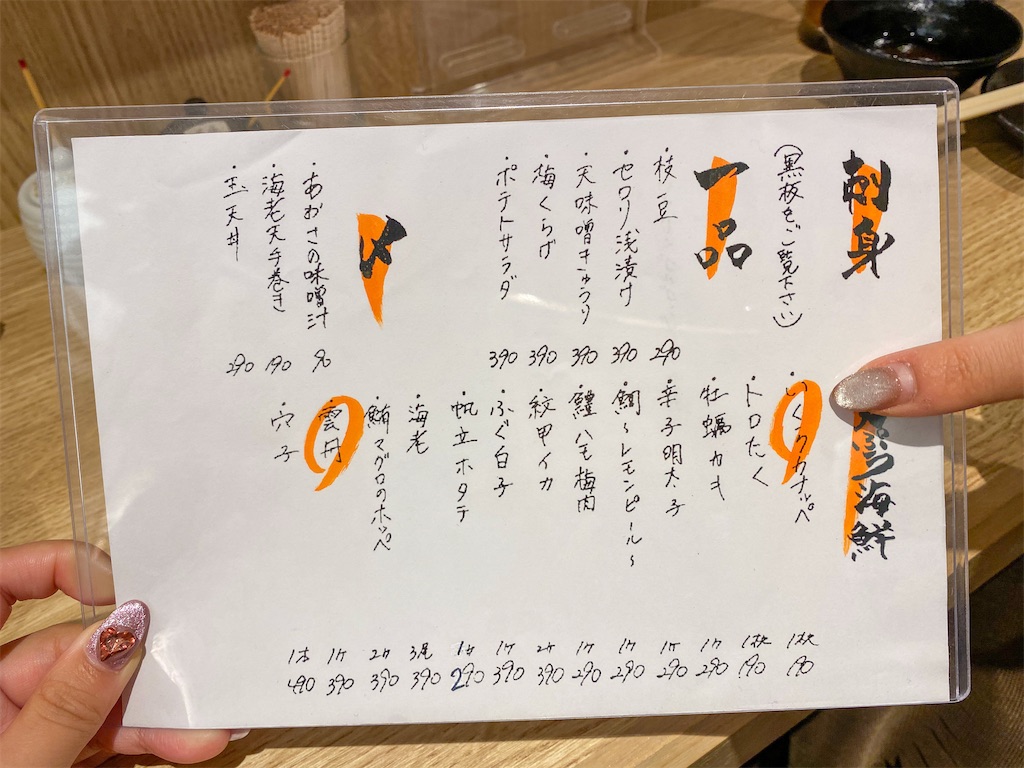 刺身
(黒板をご覧下さい)
一品
・枝豆 290
・セロリ浅漬け 390
・天味噌きゅうり 390
・梅くらげ 390
・ポテトサラダ 390
〆
・あおさの味噌汁 90
・海老天手巻き 190
・玉天丼 290
ぷら海鮮
・いくらカナッペ 1枚 190
・トロたく 1枚 190
・牡蠣カキ 1ケ 290
・辛子明太子 1ケ 290
・鯛～レモンピール～ 1ケ 290
・鱧ハモ梅肉 1ケ 290
・紋甲イカ 2ケ 390
・ふぐ白子 1ケ 390
・帆立ホタテ 1ケ 290
・海老 3尾 390
・鮪マグロのホッペ 2ケ 390
・雲丹 1ケ 390
・穴子 1本 490